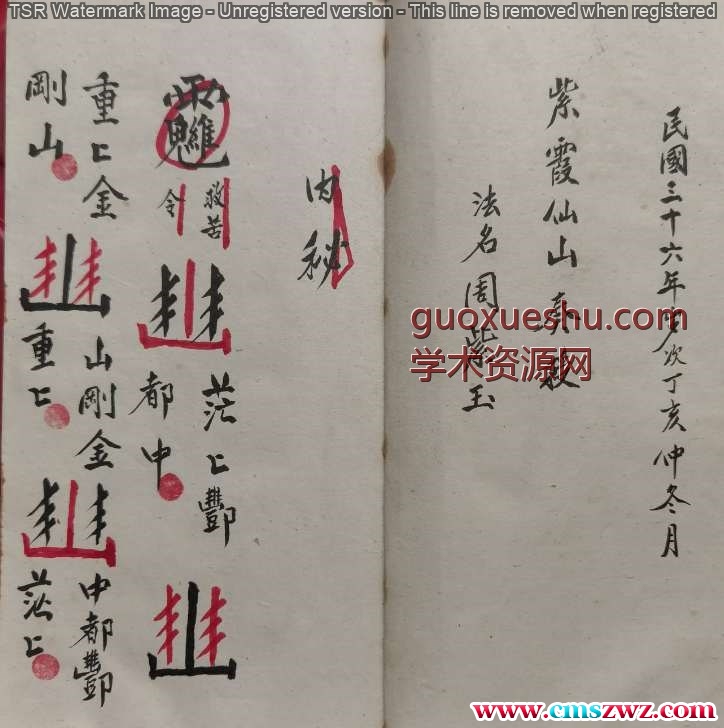 TSR Watermark Image - Unregistered version - This line is removed when registered
民國三十六年次丁亥仲冬月
紫霞仙山
法名周紫玉
内秘
救苦
令
茫〻酆
都中
重〻金
剛山
山剛金
重〻
中都酆
茫〻
guoxueshu.com
学术资源网
www.cmszwz.com